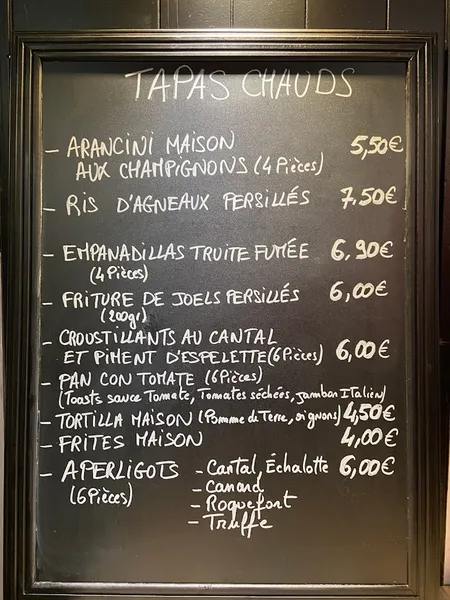 TAPAS CHAUDS
- ARANCINI MAISON 5,50€
AUX CHAMPIGNONS (4 Pièces)
- RIS D'AGNEAUX PERSILLÉS 7.50€
- EMPANADILLAS TRUITE FUMÉE 6.90€
(4 Pièces)
- FRITURE DE JOELS PERSILLÉS 6,00€
(200gr)
- CROUSTILLANTS AU CANTAL
ET PIMENT D'ESPELETTE (6 Pièces) 6,00€
- PAN CON TOMATE (6 Pièces)
(Toasts sauce Tomate, Tomates séchées, Jambon ITalien)
- TORTILLA MAISON (Pomme de Terre, oignons) 4,50€
- FRITES MAISON 4,00€
- APERLIGOTS - Cantal, Échalotte 6,00€
(6 Pièces) - Canard
- Roquefort
- Truffe